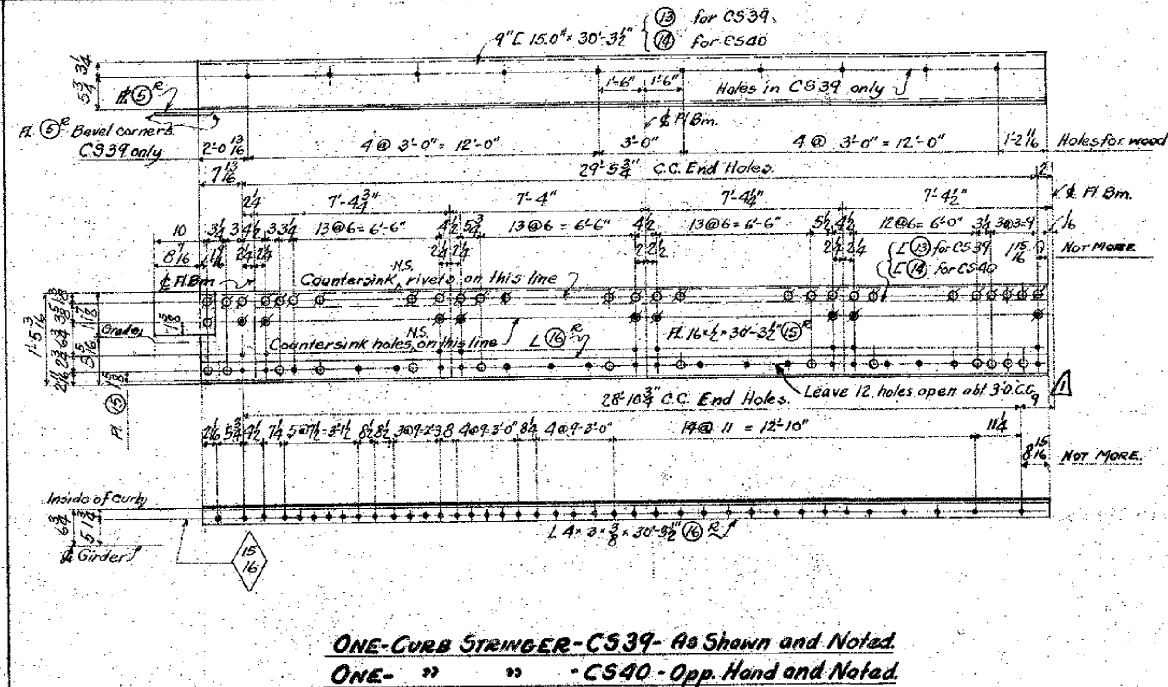 9"[ 15.0# x 30'-3½" { ⑬ for CS39.
⑭ for CS40
1'-6" 1'-6"
Holes in CS39 only
5¾ 3¼
⑤R
Pl. ⑤R Bevel corners
CS39 only
℄ Fl Bm.
2'-0 13/16 4 @ 3'-0" = 12'-0" 3'-0" 4 @ 3'-0" = 12'-0" 1'-2 11/16 Holes for wood
29'-5¾" C.C. End Holes.
7 13/16 2
2¼ 7'-4¾" 7'-4" 7'-4½" 7'-4½" ℄ Fl Bm.
10 3½ 3 4½ 3 3¼ 13@6=6'-6" 4½ 5¾ 13@6=6'-6" 4½ 13@6=6'-6" 5½ 4½ 12@6=6'-0" 3½ 3@3=9 1/16
8 7/16 2¼ 2¼ 2¼ 2¼ 2¼ 2½ 2¼ 2¼ [ ⑬ for CS39 1 15/16 NOT MORE
[ ⑭ for CS40
℄ Fl Bm
N.S.
Countersink rivets on this line
1'-5 5/16
Grade
N.S.
Countersink holes on this line L ⑯R Pl. 16 x ½ x 30'-3½" ⑮R
Pl. ⑮
Leave 12 holes open abt 3'-0 C.C.
1
28'-10¾ C.C. End Holes.
2 1/16 5¾ 4½ 7¼ 5@7½=3'-1½ 8½ 8½ 3@9=2'-3 8 4@9=3'-0" 8¼ 4@9=3'-0" 14@11=12'-10" 11¼
8 15/16 NOT MORE.
Inside of curb
6¾
5 1¾
℄ Girder
L 4 x 3 x 3/8 x 30'-3½" ⑯R
15
16
ONE-CURB STRINGER-CS39- As Shown and Noted.
ONE- " " -CS40-Opp. Hand and Noted.